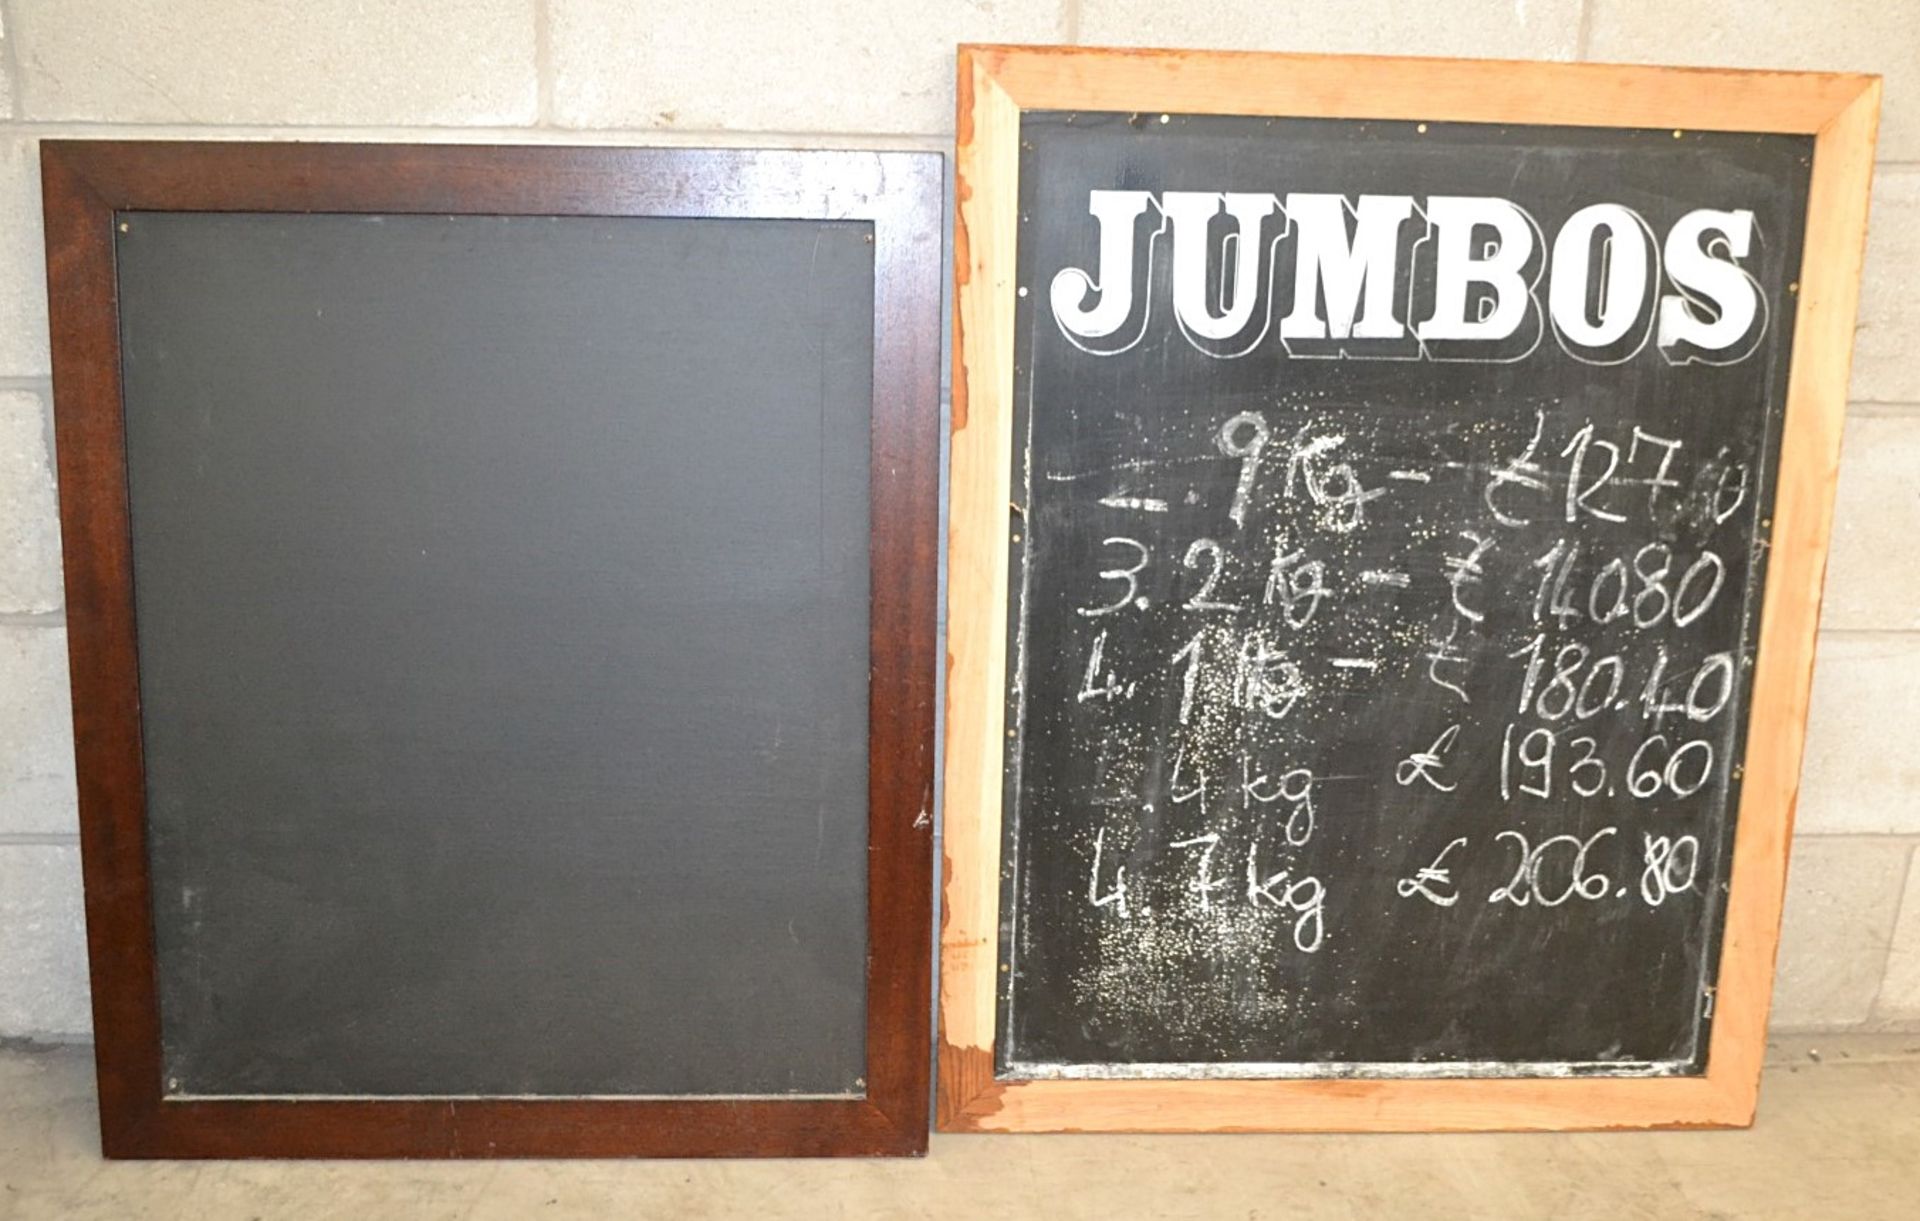 JUMBOS
.9 Kg - £127.
3.2 Kg - £ 140.80
4.1 Kg - £ 180.40
.4 kg £ 193.60
4.7 kg £ 206.80